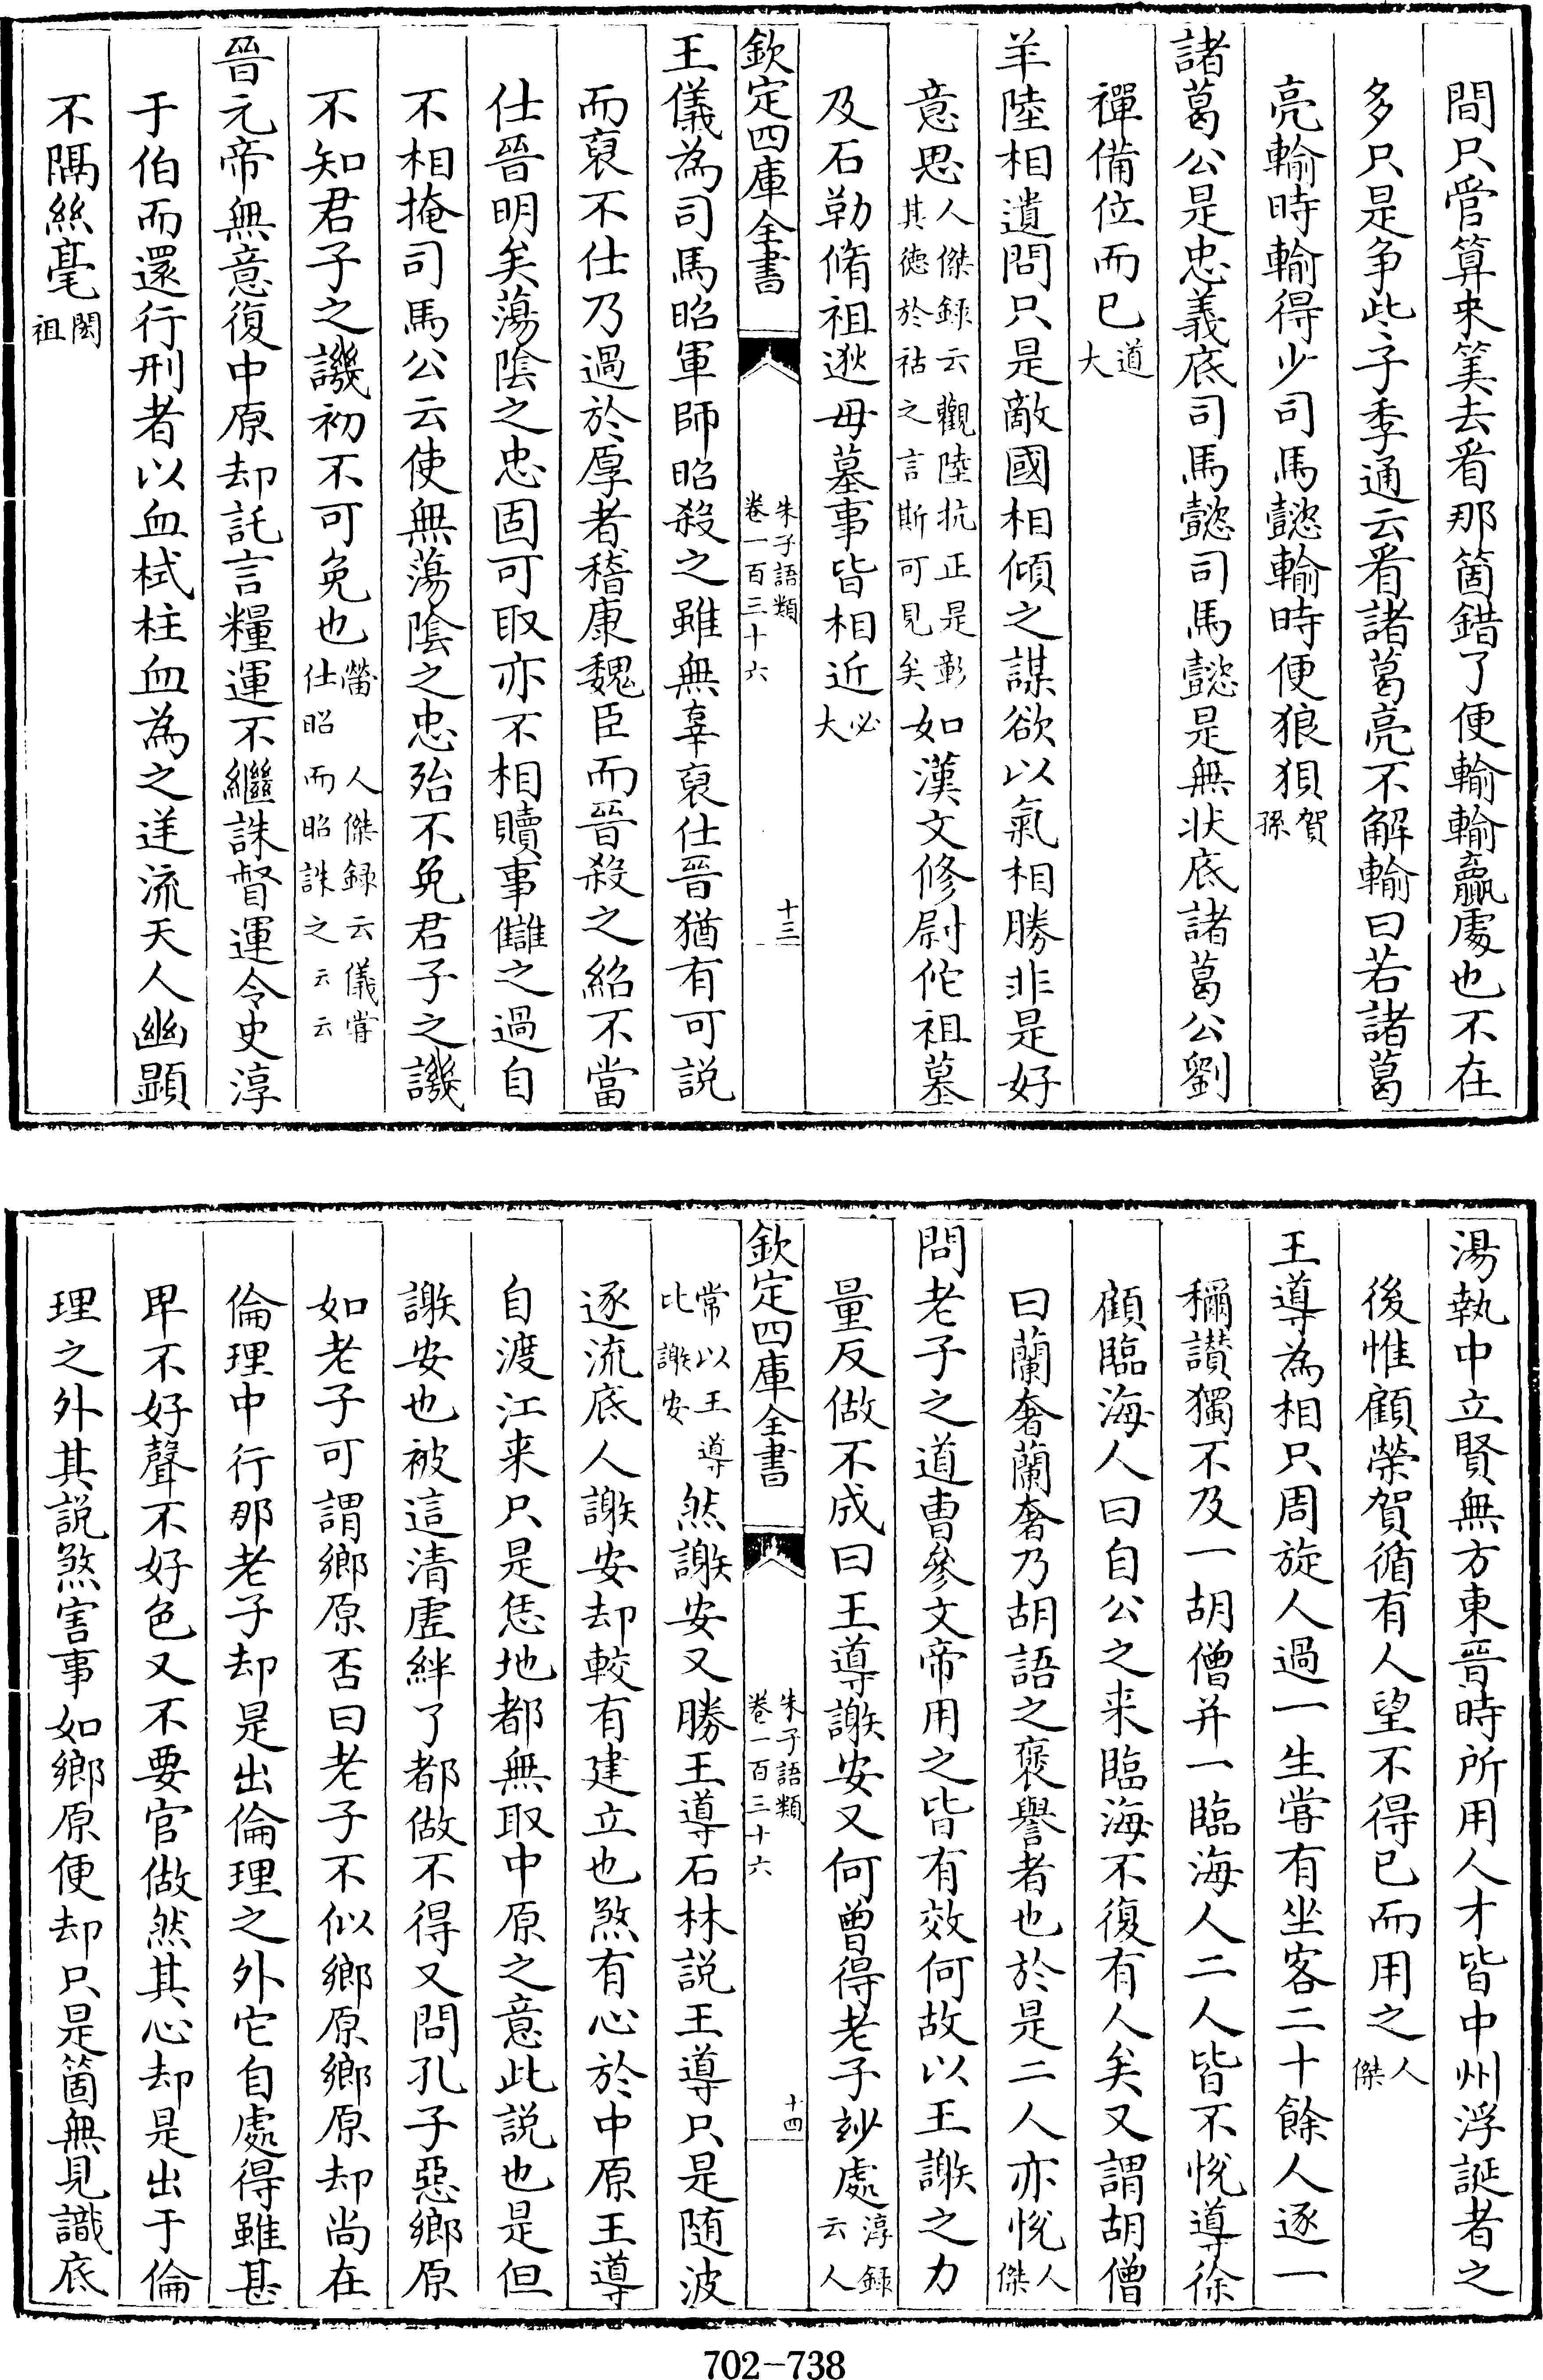 間只管算來筭去看那箇錯了便輸輸贏處也不在
多只是争些子季通云看諸葛亮不解輸曰若諸葛
亮輸時輸得少司馬懿輸時便狼狽賀孫
諸葛公是忠義底司馬懿司馬懿是無状底諸葛公劉
禪備位而已道大
羊陸相遺問只是敵國相傾之謀欲以氣相勝非是好
意思人傑録云觀陸抗正是彰其徳於祜之言斯可見矣如漢文修尉佗祖墓
及石勒脩祖逖母墓事皆相近必大
欽定四庫全書
朱子語類
卷一百三十六
十三
王儀為司馬昭軍師昭殺之雖無辜裒仕晉猶有可説
而裒不仕乃過於厚者稽康魏臣而晉殺之紹不當
仕晉明矣蕩陰之忠固可取亦不相贖事讎之過自
不相掩司馬公云使無蕩陰之忠殆不免君子之譏
不知君子之譏初不可免也䕫人傑録云儀甞仕昭而昭誅之云云
晉元帝無意復中原却託言糧運不繼誅督運令史淳
于伯而還行刑者以血拭柱血為之逆流天人幽顯
不隔絲毫閎祖
湯執中立賢無方東晉時所用人才皆中州浮誕者之
後惟顧榮賀循有人望不得已而用之人傑
王導為相只周旋人過一生甞有坐客二十餘人逐一
稱讃獨不及一胡僧并一臨海人二人皆不悦導徐
顧臨海人曰自公之来臨海不復有人矣又謂胡僧
曰蘭奢蘭奢乃胡語之褒譽者也於是二人亦悦人傑
問老子之道曹參文帝用之皆有效何故以王謝之力
量反做不成曰王導謝安又何曾得老子妙處淳録云人
欽定四庫全書
朱子語類
卷一百三十六
十四
常以王導比謝安然謝安又勝王導石林説王導只是随波
逐流底人謝安却較有建立也煞有心於中原王導
自渡江来只是恁地都無取中原之意此説也是但
謝安也被這清虛絆了都做不得又問孔子惡鄉原
如老子可謂鄉原否曰老子不似鄉原鄉原却尚在
倫理中行那老子却是出倫理之外它自處得雖甚
卑不好聲不好色又不要官做然其心却是出于倫
理之外其説煞害事如鄉原便却只是箇無見識底
702-738